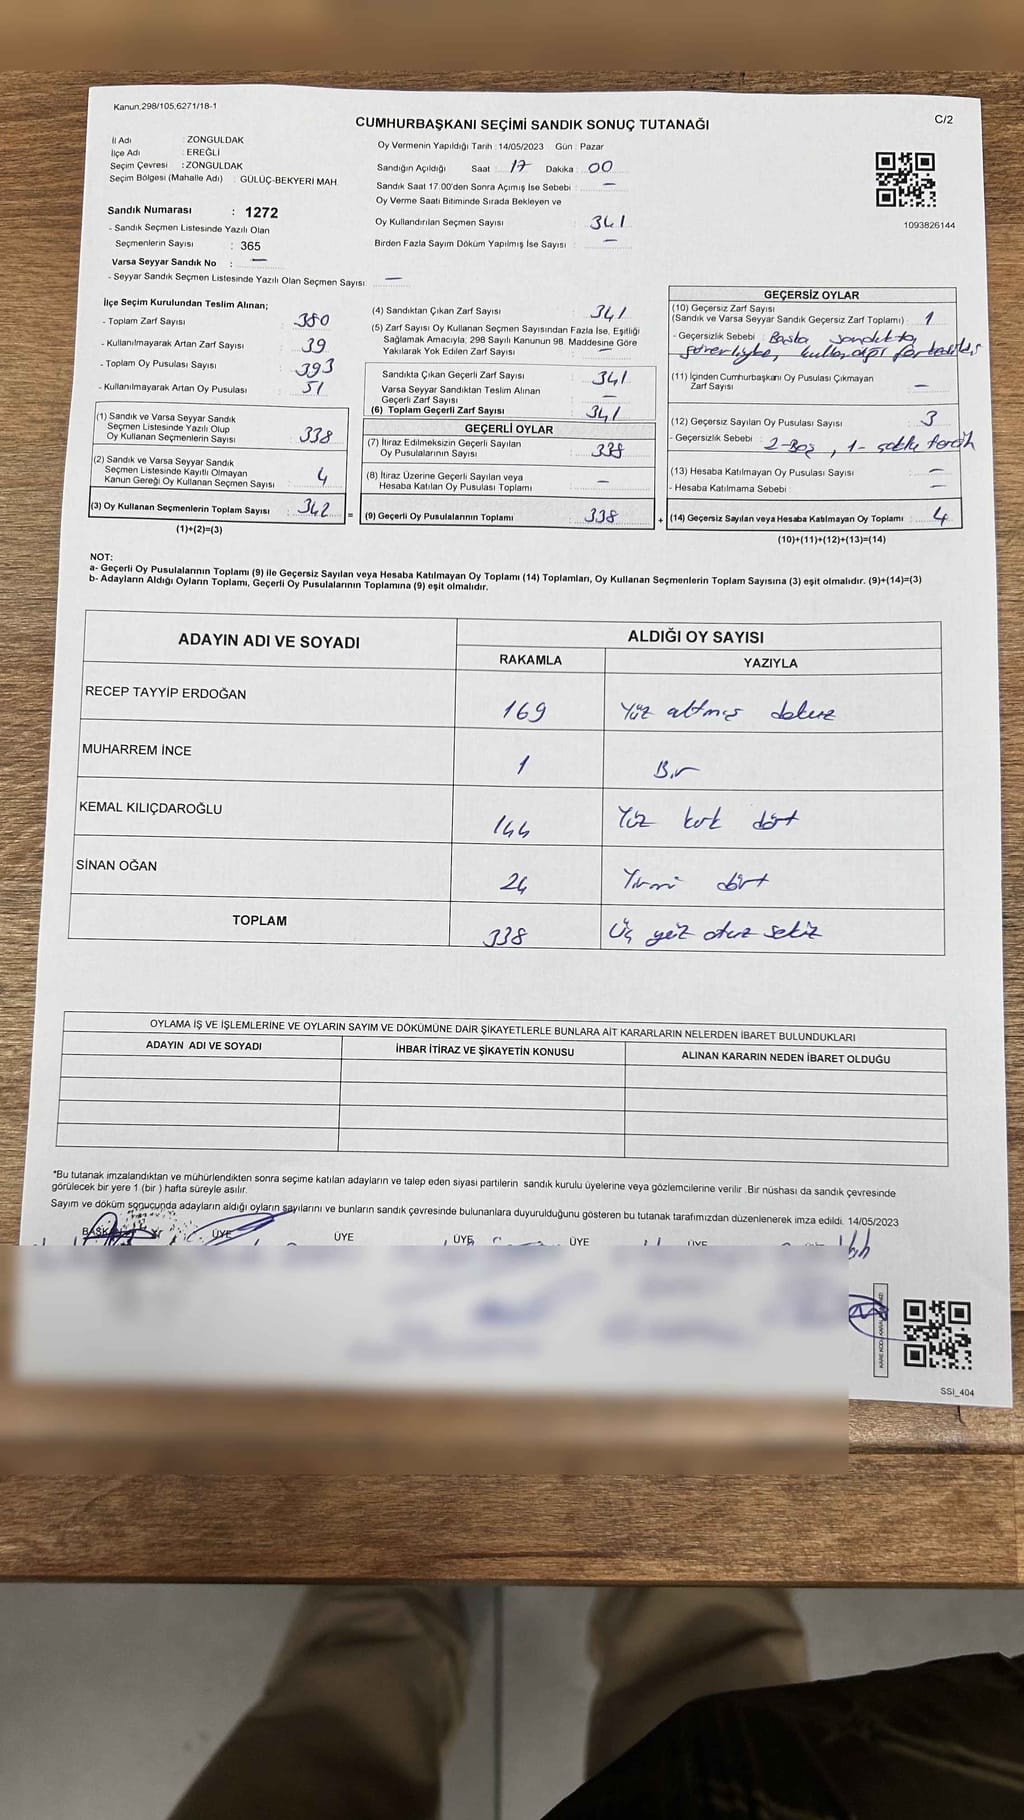 Kanun,298/105,6271/18-1
C/2
CUMHURBAŞKANI SEÇİMİ SANDIK SONUÇ TUTANAĞI
İl Adı : ZONGULDAK
İlçe Adı : EREĞLİ
Seçim Çevresi : ZONGULDAK
Seçim Bölgesi (Mahalle Adı) : GÜLÜÇ-BEKYERİ MAH.
Sandık Numarası : 1272
- Sandık Seçmen Listesinde Yazılı Olan
Seçmenlerin Sayısı : 365
Varsa Seyyar Sandık No : —
- Seyyar Sandık Seçmen Listesinde Yazılı Olan Seçmen Sayısı: —
Oy Vermenin Yapıldığı Tarih : 14/05/2023 Gün : Pazar
Sandığın Açıldığı Saat : 17 Dakika : 00
Sandık Saat 17.00'den Sonra Açımış İse Sebebi : —
Oy Verme Saati Bitiminde Sırada Bekleyen ve
Oy Kullandırılan Seçmen Sayısı : 341
Birden Fazla Sayım Döküm Yapılmış İse Sayısı : —
1093826144
İlçe Seçim Kurulundan Teslim Alınan;
- Toplam Zarf Sayısı : 380
- Kullanılmayarak Artan Zarf Sayısı : 39
- Toplam Oy Pusulası Sayısı : 393
- Kullanılmayarak Artan Oy Pusulası : 51
(1) Sandık ve Varsa Seyyar Sandık
Seçmen Listesinde Yazılı Olup
Oy Kullanan Seçmenlerin Sayısı : 338
(2) Sandık ve Varsa Seyyar Sandık
Seçmen Listesinde Kayıtlı Olmayan
Kanun Gereği Oy Kullanan Seçmen Sayısı : 4
(3) Oy Kullanan Seçmenlerin Toplam Sayısı : 342 =
(1)+(2)=(3)
(4) Sandıktan Çıkan Zarf Sayısı : 341
(5) Zarf Sayısı Oy Kullanan Seçmen Sayısından Fazla İse, Eşitliği
Sağlamak Amacıyla, 298 Sayılı Kanunun 98. Maddesine Göre
Yakılarak Yok Edilen Zarf Sayısı : —
Sandıkta Çıkan Geçerli Zarf Sayısı : 341
Varsa Seyyar Sandıktan Teslim Alınan
Geçerli Zarf Sayısı : —
(6) Toplam Geçerli Zarf Sayısı : 341
GEÇERLİ OYLAR
(7) İtiraz Edilmeksizin Geçerli Sayılan
Oy Pusulalarının Sayısı : 338
(8) İtiraz Üzerine Geçerli Sayılan veya
Hesaba Katılan Oy Pusulası Toplamı : —
(9) Geçerli Oy Pusulalarının Toplamı : 338 +
GEÇERSİZ OYLAR
(10) Geçersiz Zarf Sayısı
(Sandık ve Varsa Seyyar Sandık Geçersiz Zarf Toplamı) : 1
- Geçersizlik Sebebi : Başka sandıkta
görevliyke, kullandığı
(11) İçinden Cumhurbaşkanı Oy Pusulası Çıkmayan
Zarf Sayısı : —
(12) Geçersiz Sayılan Oy Pusulası Sayısı : 3
- Geçersizlik Sebebi : 2-Boş, 1- çoklu tercih
(13) Hesaba Katılmayan Oy Pusulası Sayısı : —
- Hesaba Katılmama Sebebi : —
(14) Geçersiz Sayılan veya Hesaba Katılmayan Oy Toplamı : 4
(10)+(11)+(12)+(13)=(14)
NOT:
a- Geçerli Oy Pusulalarının Toplamı (9) ile Geçersiz Sayılan veya Hesaba Katılmayan Oy Toplamı (14) Toplamları, Oy Kullanan Seçmenlerin Toplam Sayısına (3) eşit olmalıdır. (9)+(14)=(3)
b- Adayların Aldığı Oyların Toplamı, Geçerli Oy Pusulalarının Toplamına (9) eşit olmalıdır.
ADAYIN ADI VE SOYADI ALDIĞI OY SAYISI
RAKAMLA YAZIYLA
RECEP TAYYİP ERDOĞAN 169 Yüz altmış dokuz
MUHARREM İNCE 1 Bir
KEMAL KILIÇDAROĞLU 144 Yüz kırk dört
SİNAN OĞAN 24 Yirmi dört
TOPLAM 338 Üç yüz otuz sekiz
OYLAMA İŞ VE İŞLEMLERİNE VE OYLARIN SAYIM VE DÖKÜMÜNE DAİR ŞİKAYETLERLE BUNLARA AİT KARARLARIN NELERDEN İBARET BULUNDUKLARI
ADAYIN ADI VE SOYADI İHBAR İTİRAZ VE ŞİKAYETİN KONUSU ALINAN KARARIN NEDEN İBARET OLDUĞU
*Bu tutanak imzalandıktan ve mühürlendikten sonra seçime katılan adayların ve talep eden siyasi partilerin sandık kurulu üyelerine veya gözlemcilerine verilir .Bir nüshası da sandık çevresinde
görülecek bir yere 1 (bir ) hafta süreyle asılır.
Sayım ve döküm sonucunda adayların aldığı oyların sayılarını ve bunların sandık çevresinde bulunanlara duyurulduğunu gösteren bu tutanak tarafımızdan düzenlenerek imza edildi. 14/05/2023
BAŞKAN ÜYE ÜYE ÜYE ÜYE ÜYE
SSI_404